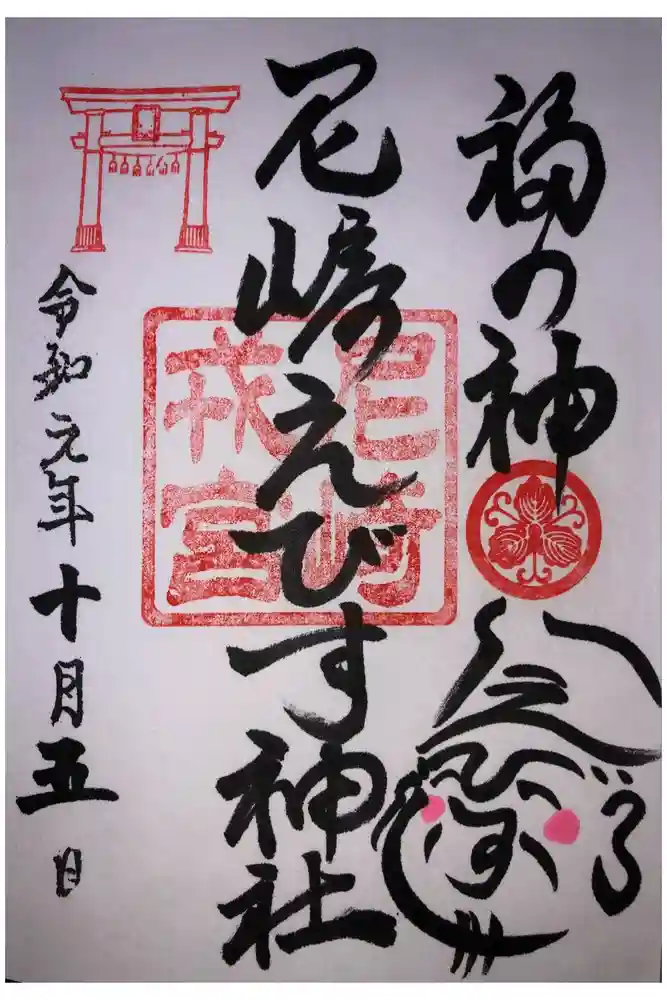 福の神
尼崎えびす神社
尼崎
戎宮
令和元年十月五日
えびす